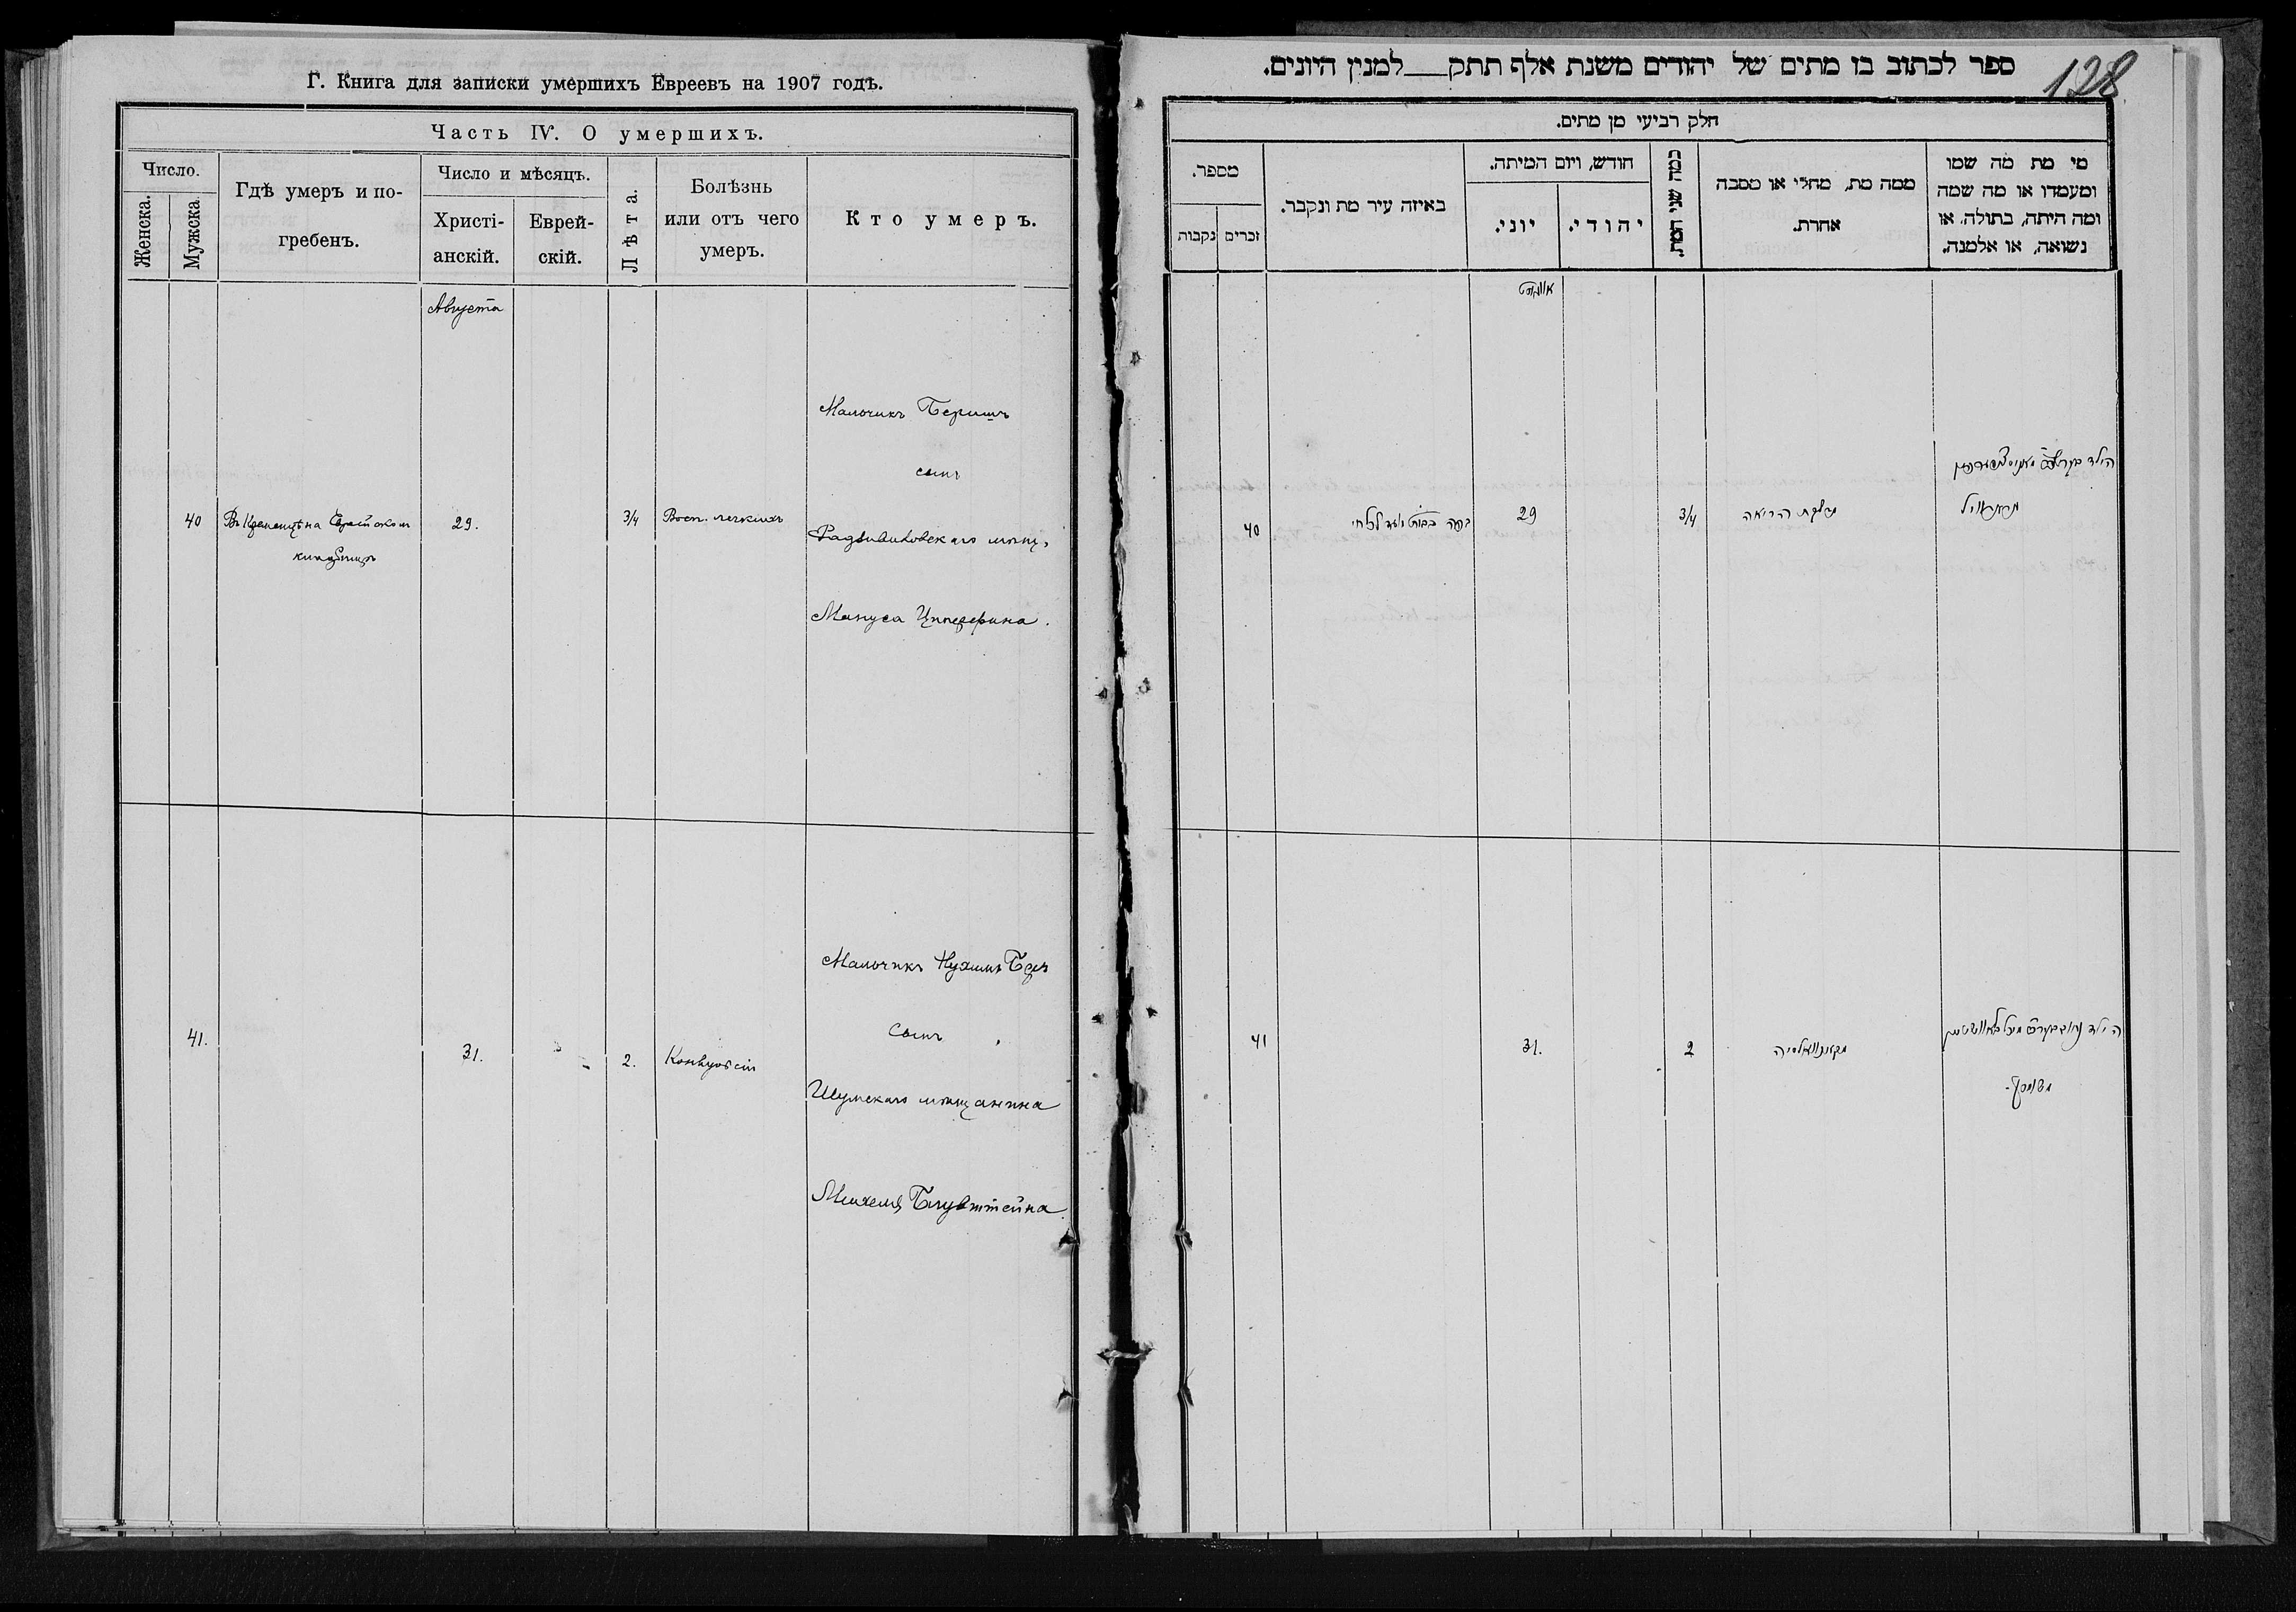 Г. Книга для записки умершихъ Евреевъ на 1907 годъ.
Часть IV. О умершихъ.
Число.
Женска.
Мужска.
Гдѣ умеръ и по-
гребенъ.
Число и мѣсяцъ.
Христі-
анскій.
Еврей-
скій.
Лѣта.
Болѣзнь
или отъ чего
умеръ.
Кто умеръ.
Августа
40
Въ Кременцѣ на Еврейском
кладбищѣ
29.
3/4
Восп. легкихъ
Мальчикъ Беришъ
сынъ
Радзивиловскаго мѣщ.
Мануса
41.
31.
2.
Конвульсіи
Мальчикъ Нухимъ Беръ
Сынъ
Шумскаго мѣщанина
Михеля Блувштейна
128
ספר לכתוב בו מתים של יהודים משנת אלף תתק למנין היונים.
חלק רביעי מן מתים.
מספר.
נקבות
זכרים
באיזה עיר מת ונקבר.
חודש, ויום המיתה.
יוני.
יהודי.
כמה שני המת.
ממה מת, מחלי או מסבה
אחרת.
מי מת מה שמו
ומעמדו או מה שמה
ומה היתה, בתולה, או
נשואה, או אלמנה.
אווגוסט
40
29
3/4
הריאה
הילד
41
31.
2
הילד